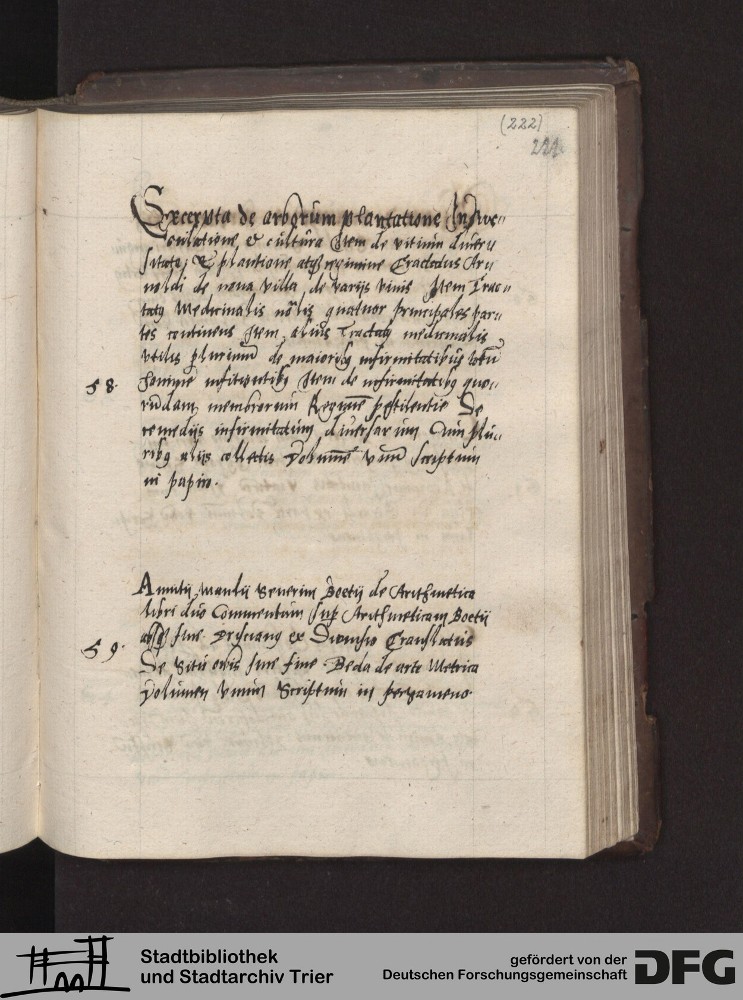 (222)
221.
Excerpta de arborum plantatione Inserve„
culatione & cultura Item de vitium diver„
sitate & plantione atq regimine Tractatus Ar„
noldi de nova villa de varijs vinis Item Trac„
tatq Medicinalis nõlis quatuor principales par„
tes continens Item alius Tractatq medicinalis
vtilis plurimũ de maioribq infirmitatibus
homine Item de infirmitatibq quo„
58. rundam membrorum Regimẽ pestilentie De
remedijs infirmitatum diversarum Cum plu„
ribq alijs collectis Volumẽ vnũ scriptum
in papiro.
Annitij Manlij Severini Boetij de Arithmetica
libri duo Commentum sup Arithmeticam Boetij
absq fine. Priscianq ex Dionisio Translatus
59. De Situ orbis sine fine Beda de arte Metrica
Volumen vnum Scriptum in pergameno.
Stadtbibliothek
und Stadtarchiv Trier
gefördert von der
Deutschen Forschungsgemeinschaft
DFG